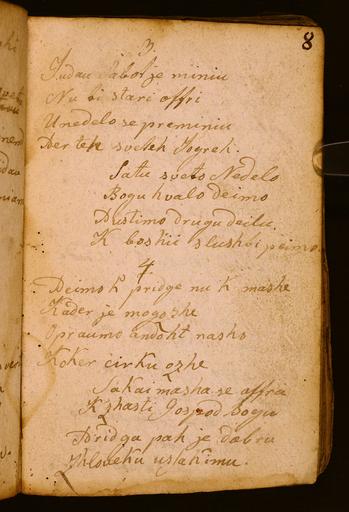 8
3.
Judau Sabot je miniu
Nu bi stari offri
U nedelo se preminiu
Per teh sveteh Jogreh.
Satu sveto Nedelo
Bogu hvalo deimo
Pustimo drugu deilu
K boshii slushbi peimo.
4
Deimo k pridge nu k mashe
Kader je mogozhe
Opraumo andoht nasho
Koker cirku ozhe
Sakai masha se offra
K zhasti Gospod Bogu
Pridga pak je dobru
Zhloveku uslakimu.